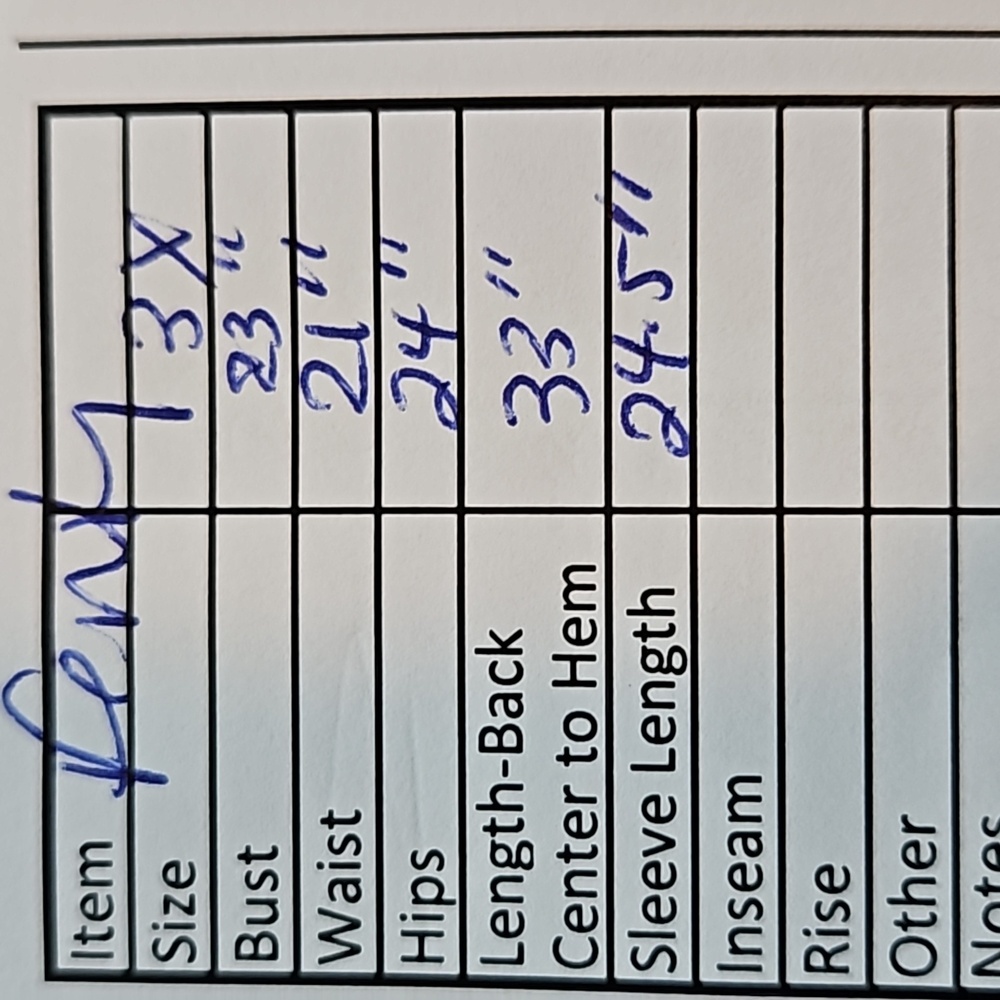 Item
Size 3X
Bust 23"
Waist 21"
Hips 24"
Length-Back 33"
Center to Hem
Sleeve Length 24.5"
Inseam
Rise
Other
Notes